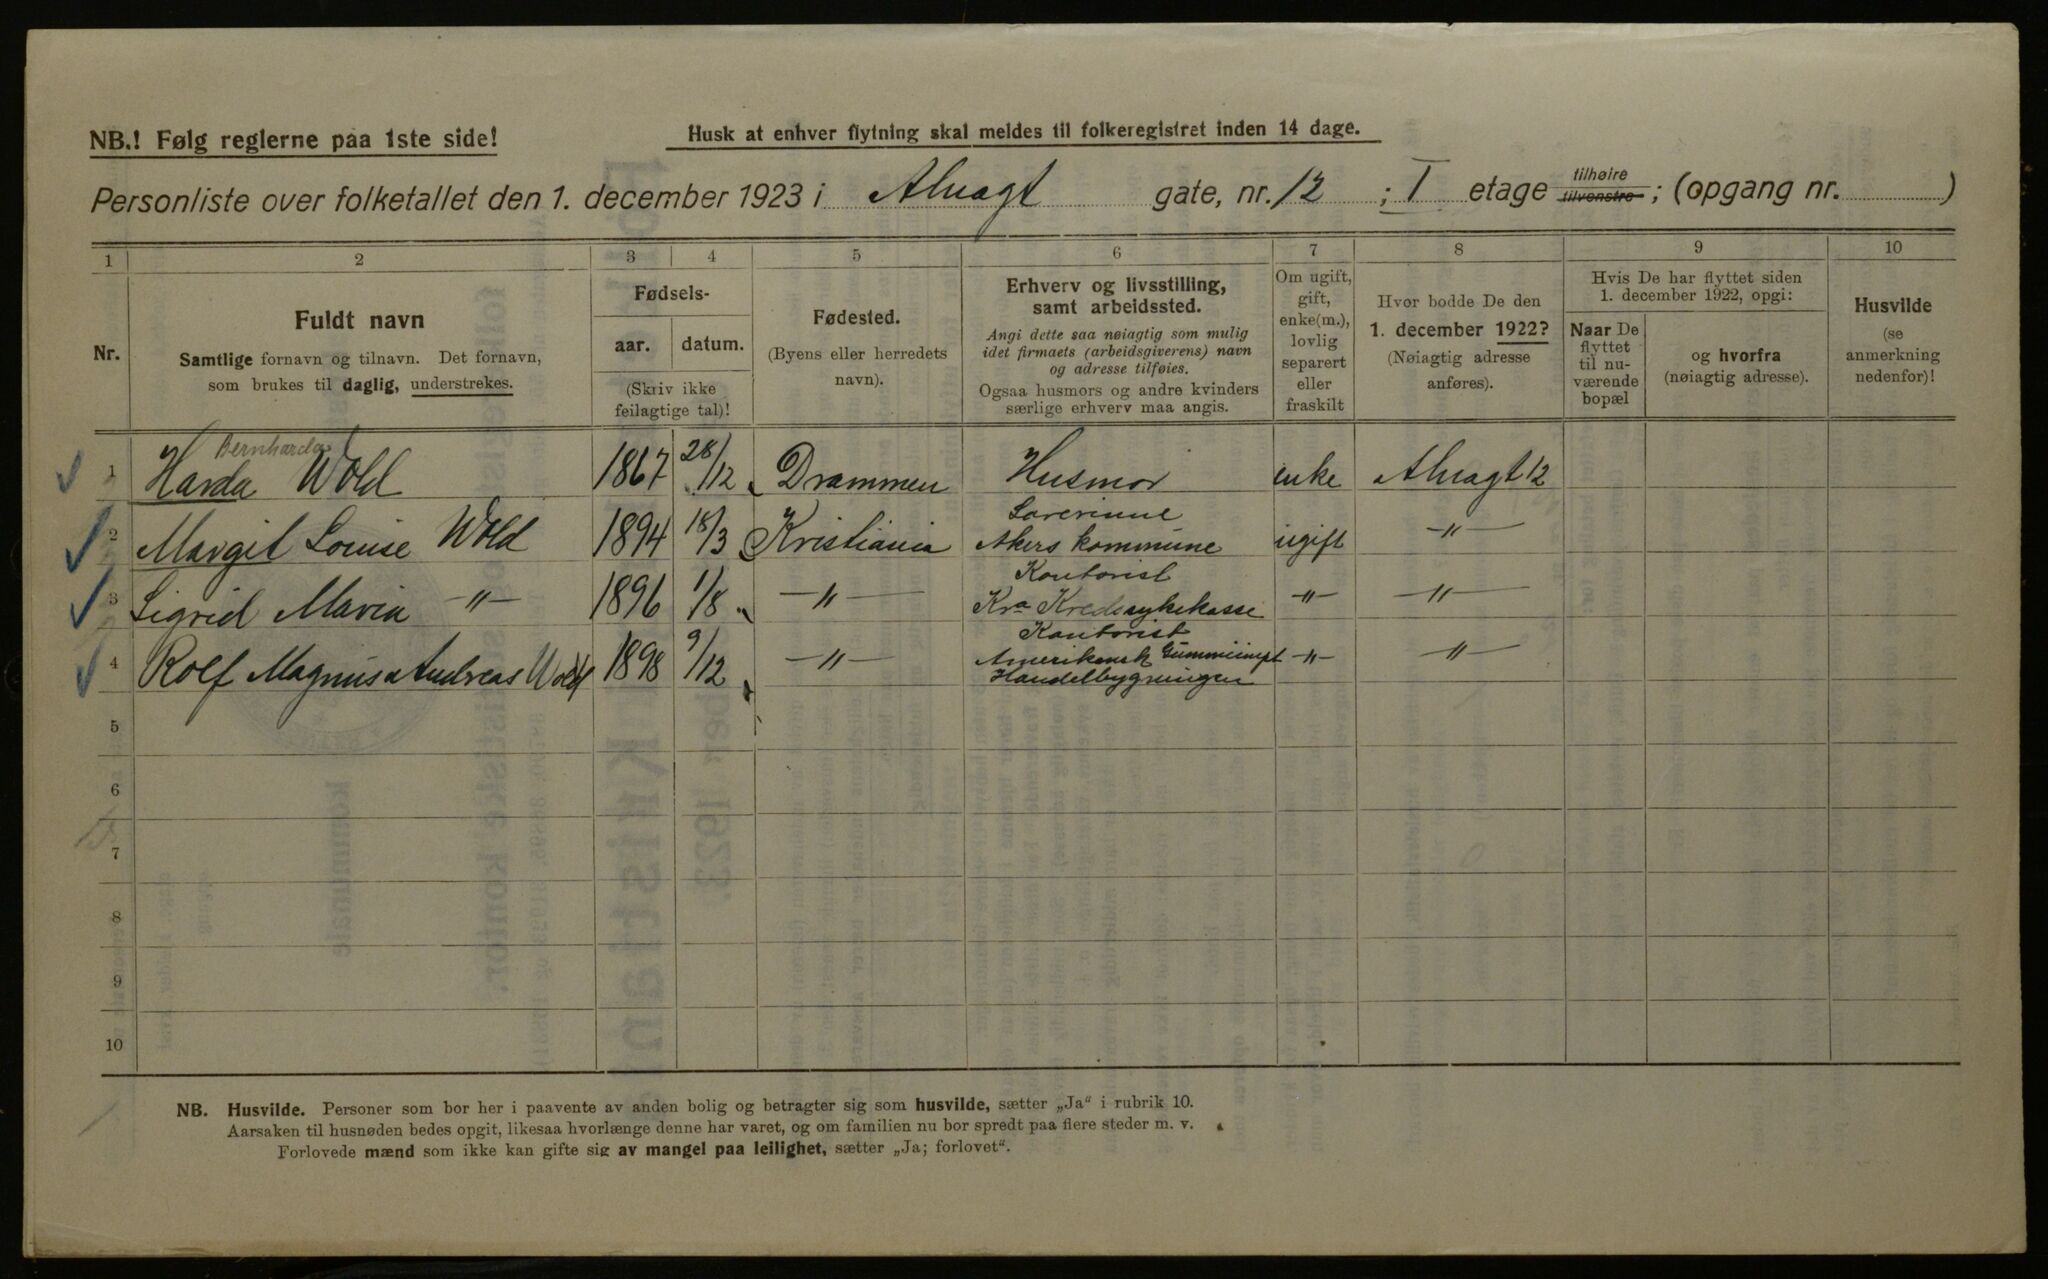 NB.! Følg reglerne paa 1ste side!
Husk at enhver flytning skal meldes til folkeregistret inden 14 dage.
Personliste over folketallet den 1. december 1923 i Alvagt gate, nr. 12 ; I etage tilhøire tilvenstre ; (opgang nr. )
1 2 3 4 5 6 7 8 9 10
Nr.
Fuldt navn
Samtlige fornavn og tilnavn. Det fornavn,
som brukes til daglig, understrekes.
Fødsels-
aar. datum.
(Skriv ikke
feilagtige tal)!
Fødested.
(Byens eller herredets
navn).
Erhverv og livsstilling,
samt arbeidssted.
Angi dette saa nøiagtig som mulig
idet firmaets (arbeidsgiverens) navn
og adresse tilføies.
Ogsaa husmors og andre kvinders
særlige erhverv maa angis.
Om ugift,
gift,
enke(m.),
lovlig
separert
eller
fraskilt
Hvor bodde De den
1. december 1922?
(Nøiagtig adresse
anføres).
Hvis De har flyttet siden
1. december 1922, opgi:
Naar De
flyttet
til nu-
værende
bopæl
og hvorfra
(nøiagtig adresse).
Husvilde
(se
anmerkning
nedenfor)!
Bernharda
1 Harda Wold 1867 28/12 Drammen Husmor enke Alvagt 12
Lærerinne
2 Margit Louise Wold 1894 18/3 Kristiania Akers kommune ugift —"—
Kontorist
3 Sigrid Maria —"— 1896 1/8 —"— Kra Kredssykekasse —"— —"—
Kontorist
4 Rolf Magnus Andreas Wold 1898 9/12 —"— Amerikansk Gummiimpt —"— —"—
Handelbygningen
5
6
7
8
9
10
NB. Husvilde. Personer som bor her i paavente av anden bolig og betragter sig som husvilde, sætter „Ja" i rubrik 10.
Aarsaken til husnøden bedes opgit, likesaa hvorlænge denne har varet, og om familien nu bor spredt paa flere steder m. v.
Forlovede mænd som ikke kan gifte sig av mangel paa leilighet, sætter „Ja; forlovet".